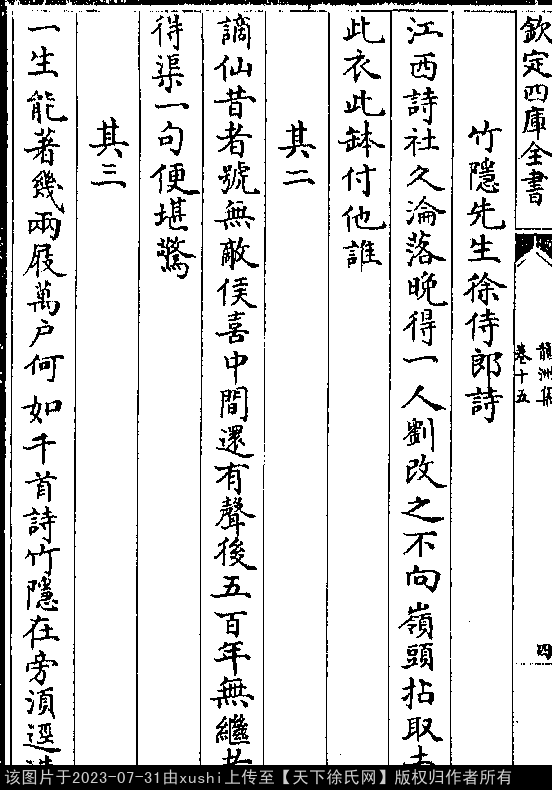 欽定四庫全書
龍洲集
卷十五
四
竹隱先生徐侍郎詩
江西詩社久淪落晚得一人劉改之不向嶺頭拈取去
此衣此鉢付他誰
其二
謫仙昔者號無敵侯喜中間還有聲後五百年無繼者
得渠一句便堪驚
其三
一生能著幾兩屐萬户何如千首詩竹隱在旁湏逕
该图片于2023-07-31由xushi上传至【天下徐氏网】版权归作者所有